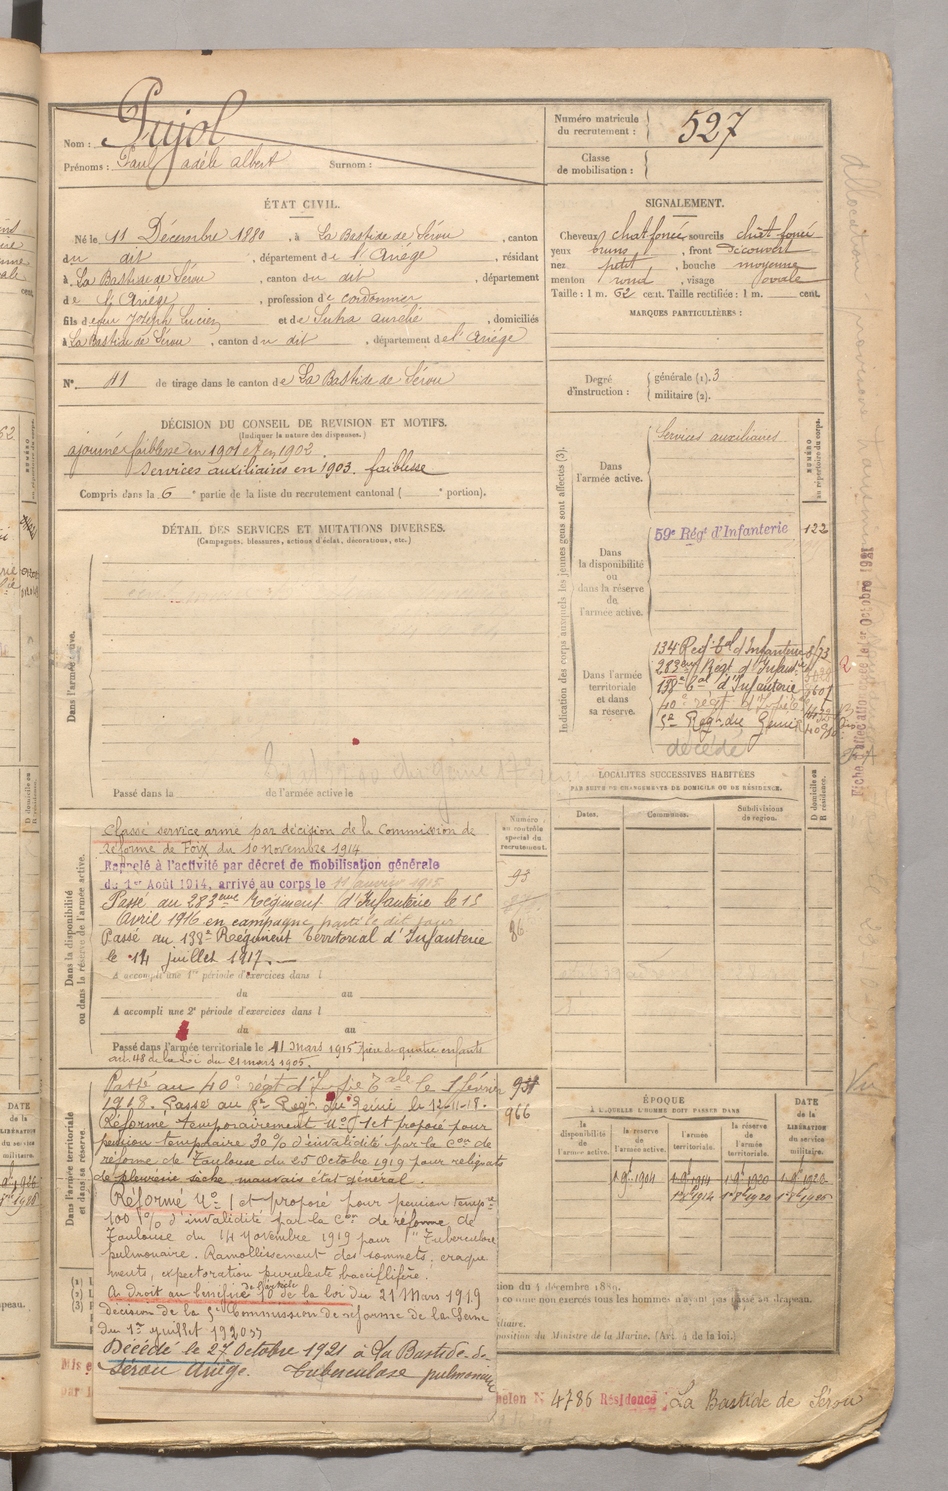 Nom : Pujol
Prénoms : Paul adéle albert Surnom :
Numéro matricule du recrutement : 527
Classe de mobilisation :
ÉTAT CIVIL.
Né le 11 Décembre 1880, à La Bastide de Sérou, canton
du dit, département de l'Ariége, résidant
à La Bastide de Sérou, canton du dit, département
de l'Ariége, profession de cordonnier
fils de feu Joseph Lucien et de Suka aurelie, domiciliés
à La Bastide de Sérou, canton du dit, département de l'Ariége
N° 41 de tirage dans le canton de La Bastide de Sérou
SIGNALEMENT.
Cheveux chat foncé sourcils chat foncé
yeux bruns, front découvert
nez petit, bouche moyenne
menton rond, visage ovale
Taille : 1 m. 62 cent. Taille rectifiée : 1 m. cent.
MARQUES PARTICULIÈRES :
Degré d'instruction : générale (1). 3
militaire (2).
DÉCISION DU CONSEIL DE REVISION ET MOTIFS.
(Indiquer la nature des dispenses.)
ajourné faiblesse en 1901 et en 1902
Services auxiliaires en 1903. faiblesse
Compris dans la 6e partie de la liste du recrutement cantonal ( e portion).
DÉTAIL DES SERVICES ET MUTATIONS DIVERSES.
(Campagnes, blessures, actions d'éclat, décorations, etc.)
Dans l'armée active.
Passé dans la de l'armée active le
Indication des corps auxquels les jeunes gens sont affectés (3).
NUMÉRO au répertoire du corps.
Dans l'armée active.
Services auxiliaires
Dans la disponibilité ou dans la réserve de l'armée active.
59e Régt d'Infanterie 122
Dans l'armée territoriale et dans sa réserve.
134 Regt tal d'Infanterie
283eme Regt d'Infanterie
138e tal d'Infanterie
40e régt d'Infie tale
5e Regt du Génie
décédé
LOCALITÉS SUCCESSIVES HABITÉES
PAR SUITE DE CHANGEMENTS DE DOMICILE OU DE RÉSIDENCE.
Dates. Communes. Subdivisions de région. D domicile ou R résidence.
Dans la disponibilité ou dans la réserve de l'armée active.
Numéro au contrôle spécial du recrutement.
Classé service armé par décision de la Commission de
Réforme de Foix du 10 novembre 1914
Rappelé à l'activité par décret de mobilisation générale
du 1er Août 1914, arrivé au corps le 11 Janvier 1915
93
Passé au 283eme Régiment d'Infanterie le 15
Avril 1916 en campagne parti le dit jour
86
Passé au 138e Régiment territorial d'Infanterie
le 14 juillet 1917.
A accompli une 1re période d'exercices dans l
du au
A accompli une 2e période d'exercices dans l
du au
Passé dans l'armée territoriale le 11 Mars 1915 père de quatre enfants
art. 48 de la Loi du 21 mars 1905.
Dans l'armée territoriale et dans sa réserve.
Passé au 40e régt d'Infie tale le 1 février
1918. Passé au 5e Regt du Génie le 12-11-18.
966
Réformé temporairement N° 1 et proposé pour
pension temporaire 30 % d'invalidité par la Con de
réforme de Toulouse du 25 Octobre 1919 pour reliquats
de pleurésie sèche mauvais état général.
Réformé N° 1 et proposé pour pension tempre
100 % d'invalidité par la Con de réforme de
Toulouse du 14 Novembre 1919 pour 1° Tuberculose
pulmonaire. Ramollissement des sommets, craque
ments, expectoration purulente bacillifère.
A droit au bénéfice de l'article 10 de la loi du 21 Mars 1919
décision de la 5e Commission de réforme de la Seine
du 1er juillet 1920
Décédé le 27 Octobre 1921 à La Bastide-de-
Sérou Ariège. Tuberculose pulmonaire
ÉPOQUE
À LAQUELLE L'HOMME DOIT PASSER DANS
DATE de la LIBÉRATION du service militaire.
la disponibilité de l'armée active. la réserve de l'armée active. l'armée territoriale. la réserve de l'armée territoriale.
1 9bre 1904 1 9bre 1914 1 9bre 1920 1 9bre 1920
sion du 4 décembre 1889.
comme non exercés tous les hommes n'ayant pas passé au drapeau.
itaire.
position du Ministre de la Marine. (Art. 4 de la loi.)
helon N° 4786 Résidence : La Bastide de Sérou
Vu